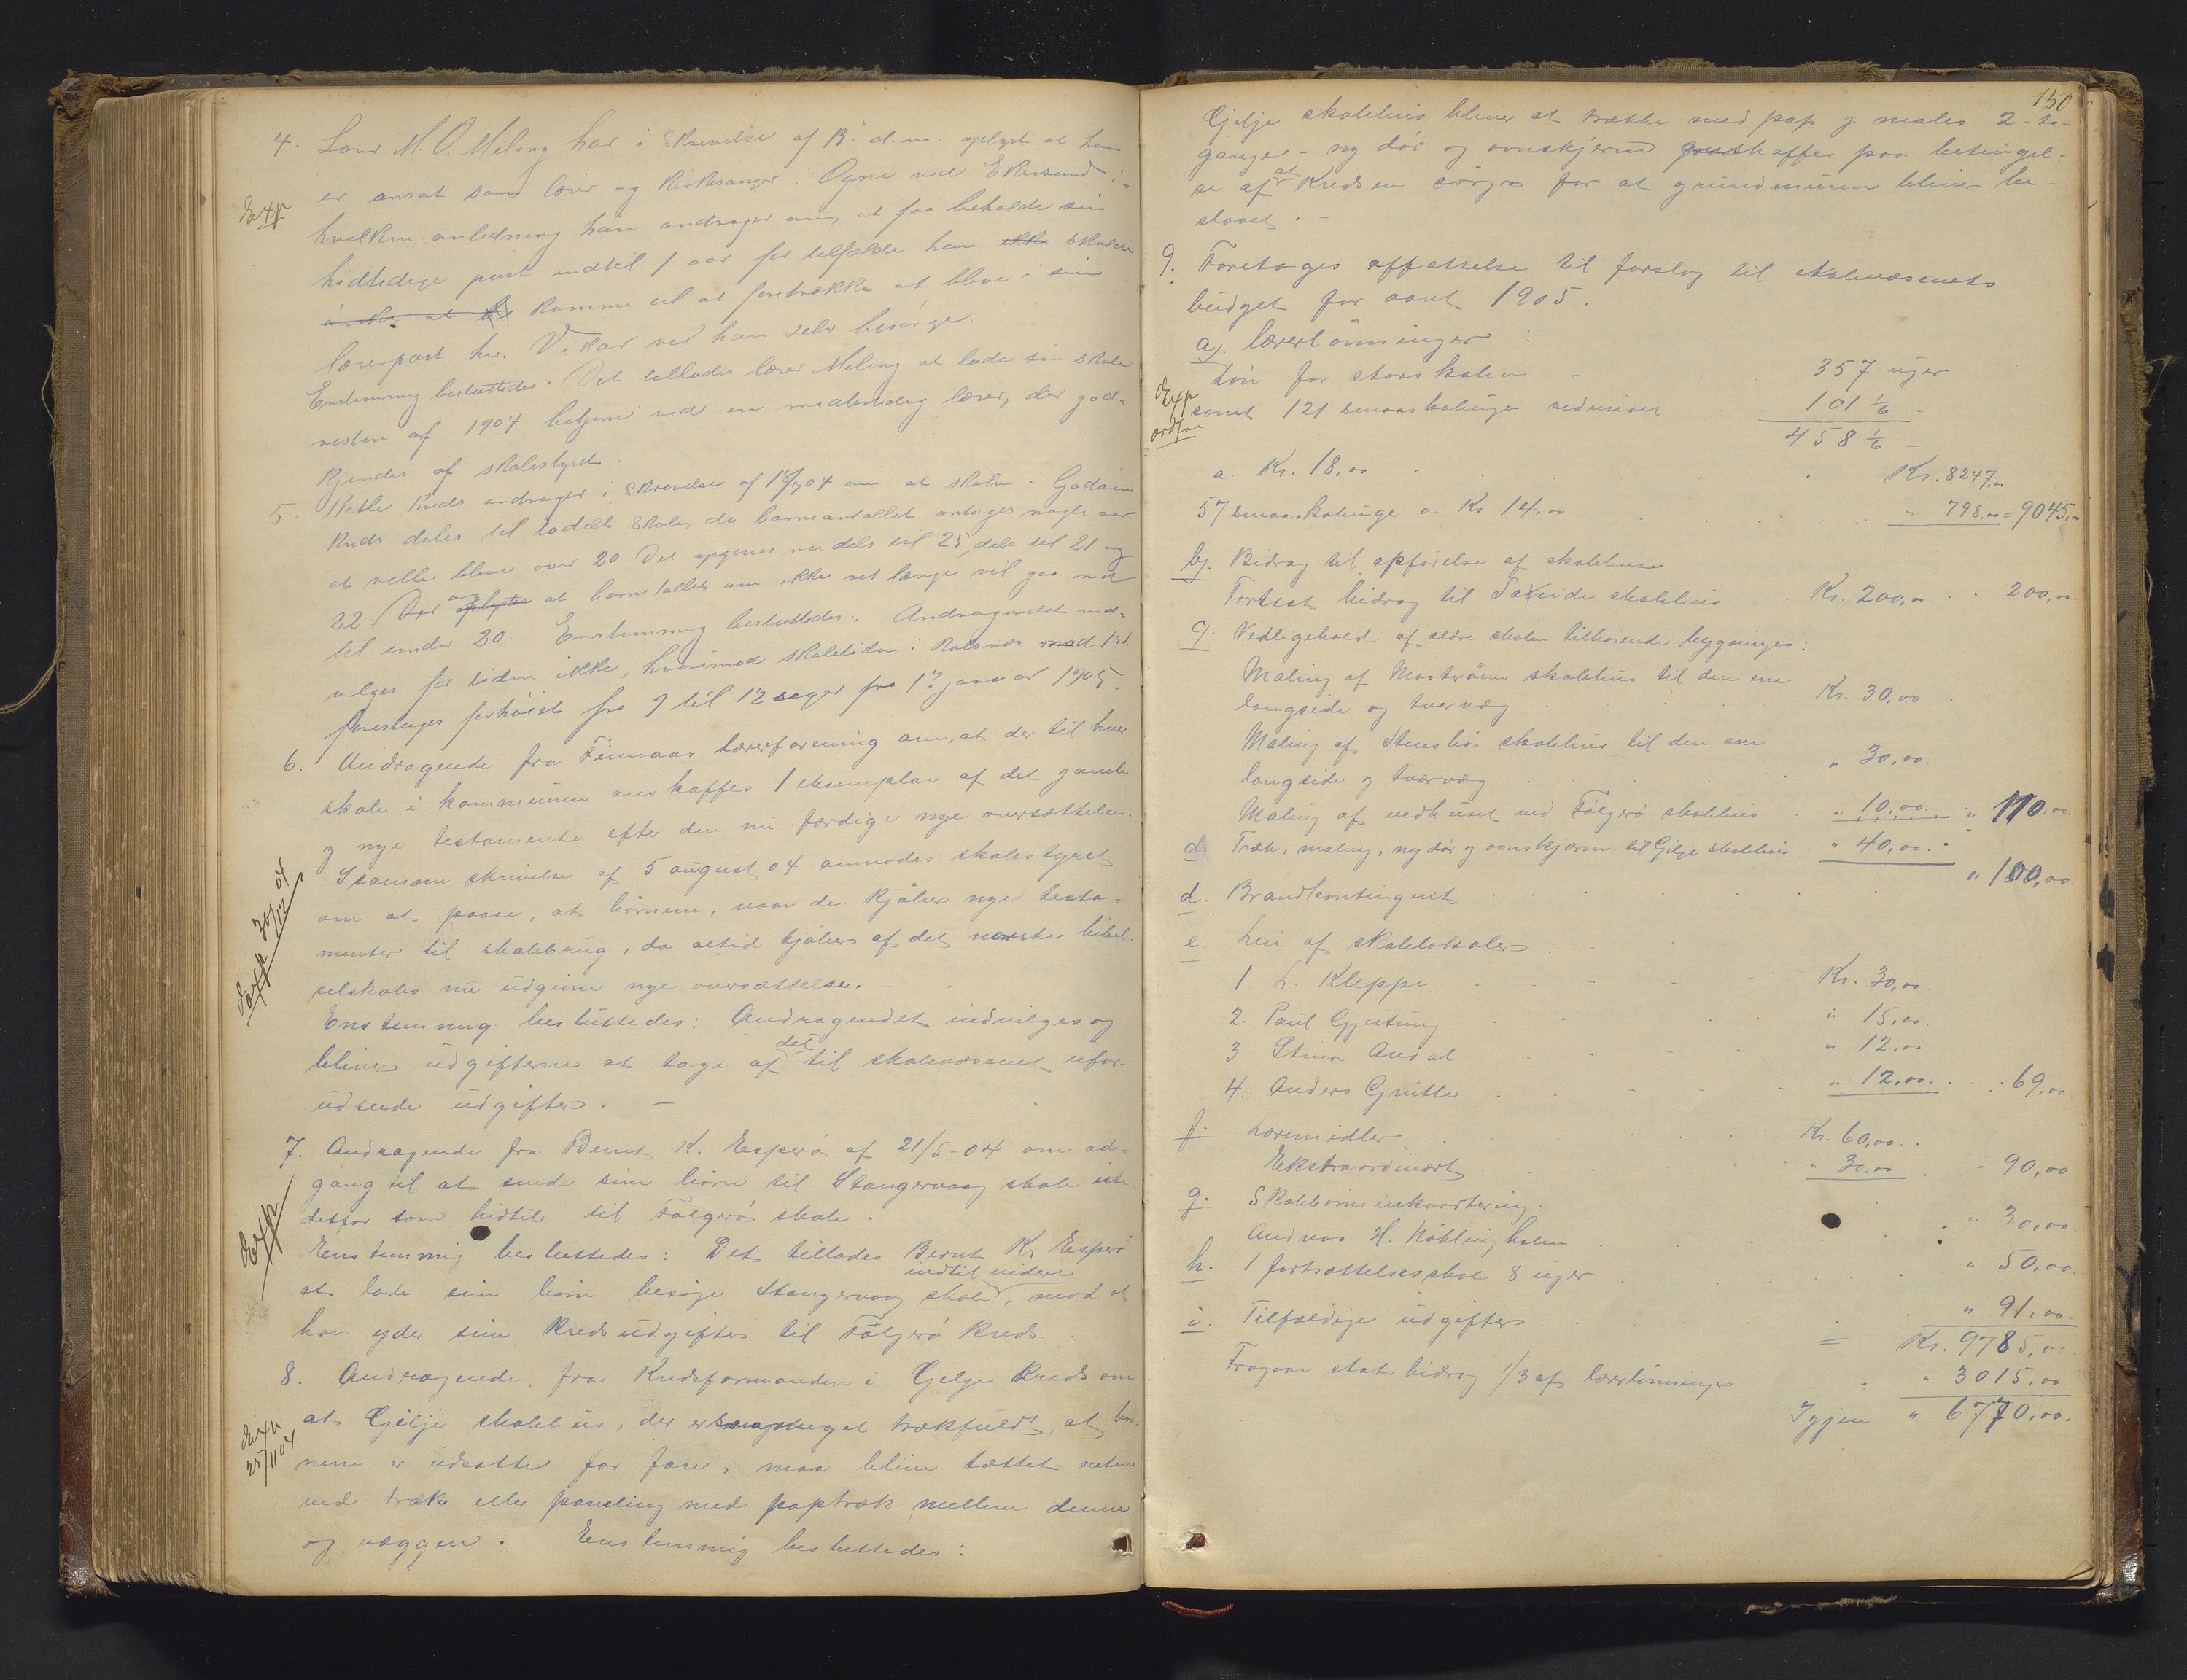 4. Lærer M. O. Meling har i skrivelse af 13. d. m. oplyst at han
er ansat som lærer og kirkesanger i Ogne ved Ekersund i
Exp
hvilken anledning han andrager om, at faa beholde sin
hidtidige post indtil 1 aar for tilfælde han ikke skulde
ønske at komme til at foretrække at blive i sin
lærerpost her. Vikar vil han selv besørge.
Enstemmig besluttedes: Det tillades lærer Meling at lade sin skole
resten af 1904 betjene ved en midlertidig lærer, der god-
kjendes af skolestyret.
5. kreds andrager i skrivelse af 04 om at skolen i
kreds deles til todelt skole, da barneantallet antages nogle aar
at ville blive over 20. Det opgives nu dels til 25, dels til 21 og
22. oplystes at barnetallet om ikke ret længe vil gaa ned
til under 20. Enstemmig besluttedes: Andragendet ind-
vilges for tiden ikke, hvorimod skoletiden i
foreslages forhøiet fra 9 til 12 uger fra 1ste januar 1905.
6. Andragende fra Finnaas lærerforening om, at der til hver
skole i kommunen anskaffes 1 eksemplar af det gamle
og nye testamente efter den nu færdige nye oversættelse.
I samme skrivelse af 5 august 04 anmodes skolestyret
om at paase, at børnene, naar de kjøber nye testa-
Exp 30/12 04
menter til skolebrug, da altid kjøbes af det norske bibel-
selskabs nu udgivne nye oversættelse. -
Enstemmig besluttedes: Andragendet indvilges og
bliver udgifterne at tage af det til skolevæsenet ufor-
udseede udgifter. -
7. Andragende fra Bernt K. Esperø af 21/5-04 om ad-
gang til at sende sine børn til Stangervaag skole iste-
detfor som hidtil til Følgerø skole.
Exp
Enstemmig besluttedes: Det tillades Bernt K. Esperø
at lade sine børn besøge Stangervaag skole indtil videre, mod at
han yder sine kredsudgifter til Følgerø kreds.
8. Andragende fra Kredsformanden i Gilje kreds om
at Gilje skolehus, der er meget trækfuldt, at bør-
Exp 25/11 04
nene er udsatte for fare, maa blive tættet enten
ved træk eller paneling med paptræk mellem denne
og væggen. Enstemmig besluttedes:
150
Gilje skolehus bliver at trække med pap og males 2 - to -
gange - ny dør og ovnskjerm skaffes paa betingel-
se af at Kredsen sørger for at grundmuren bliver be-
slaaet. -
9. Foretages affattelse til forslag til skolevæsenets
budget for aaret 1905.
a). Lærerlønninger:
Løn for storskolen 357 uger
Exp ordf.
samt 121 smaaskoleuger reduseret 101 1/6
458 1/6
a Kr. 18.00 Kr. 8247,00
57 smaaskoleuge a Kr 14.00 " 798.00 = 9045,00
b). Bidrag til opførelse af skolehuse
Fortsat bidrag til skolehus Kr. 200,00 200,00.
c. Vedligehold af ældre skolen tilhørende bygninger:
Maling af Mostrøens skolehus til den ene
langside og tvervæg Kr. 30,00.
Maling af Stensbø skolehus til den ene
langside og tvervæg " 30,00.
Maling af vedhuset ved Følgerø skolehus " 10,00. " 110,00
d. Træk, maling, ny dør og ovnskjerm til Gilje skolehus " 40,00. "
d. Brandkontingent " 100,00.
e. Leie af skolelokaler:
1. L. Kleppe Kr. 30,00.
2. Paul " 15,00.
3. Stina Andal " 12,00
4. Anders " 12,00. 69,00.
f. Læremidler Kr. 60,00.
Ekstraordinært " 30.00 " 90,00
g. Skolebørns inkvartering:
Andreas H. Nøklingholm " 30,00.
h. 1 fortsættelsesskole 8 uger " 50,00.
i. Tilfældige udgifter " 91,00.
= Kr. 9785,00
Fragaar statsbidrag 1/3 af lærerlønninger " 3015,00
Igjen " 6770,00.